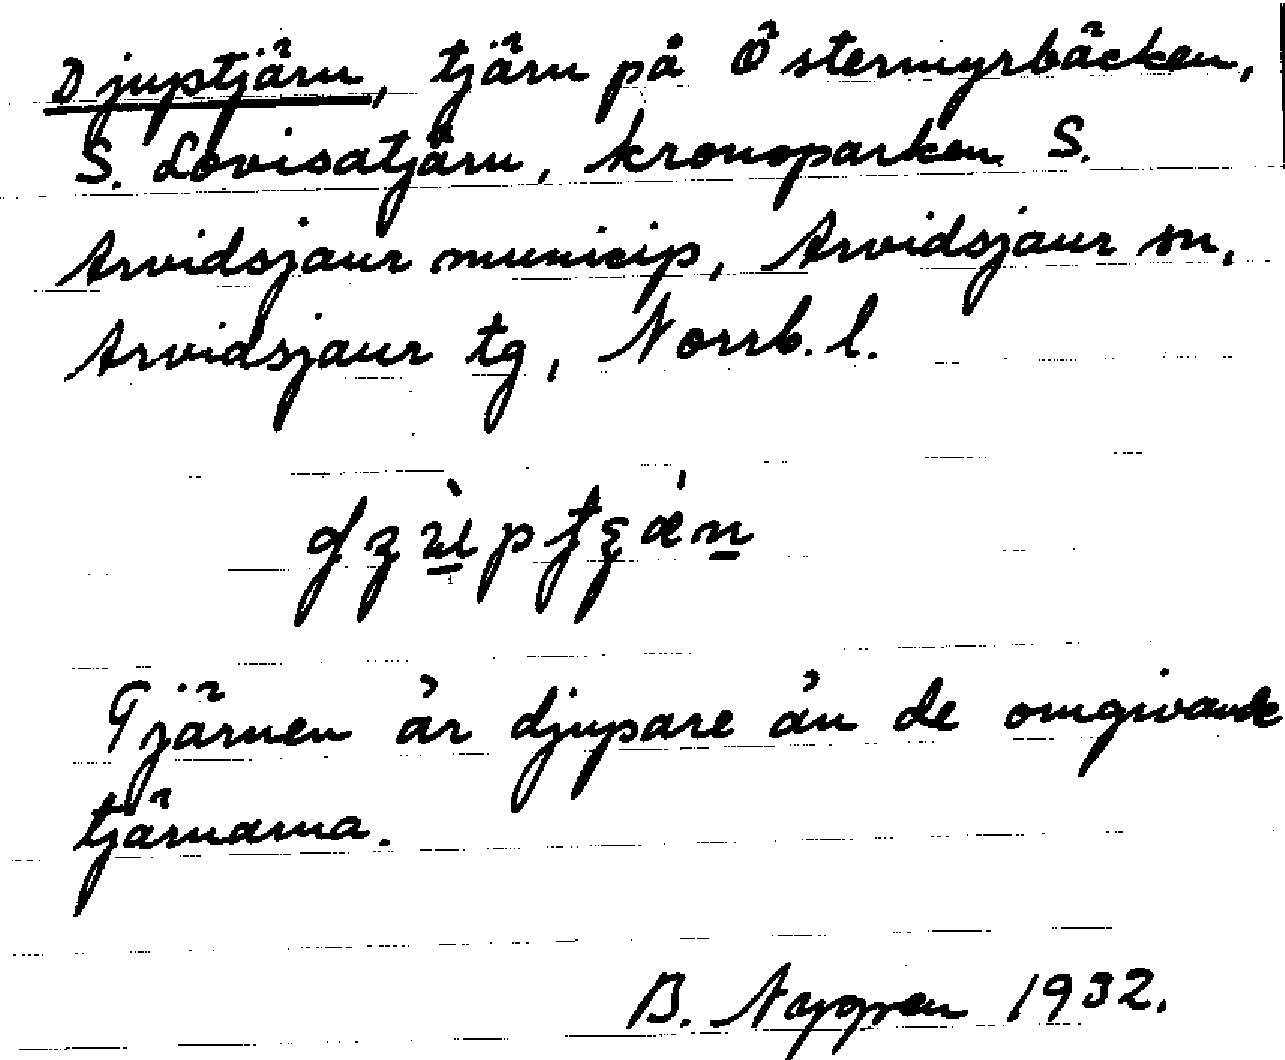 Djuptjärn, tjärn på Östermyrbäcken,
S. Lovisatjärn, kronoparken S.
Arvidsjaur municip, Arvidsjaur sn,
Arvidsjaur tg, Norrb. l.
Tjärnen är djupare än de omgivande
tjärnarna.
B. Nygren 1932.